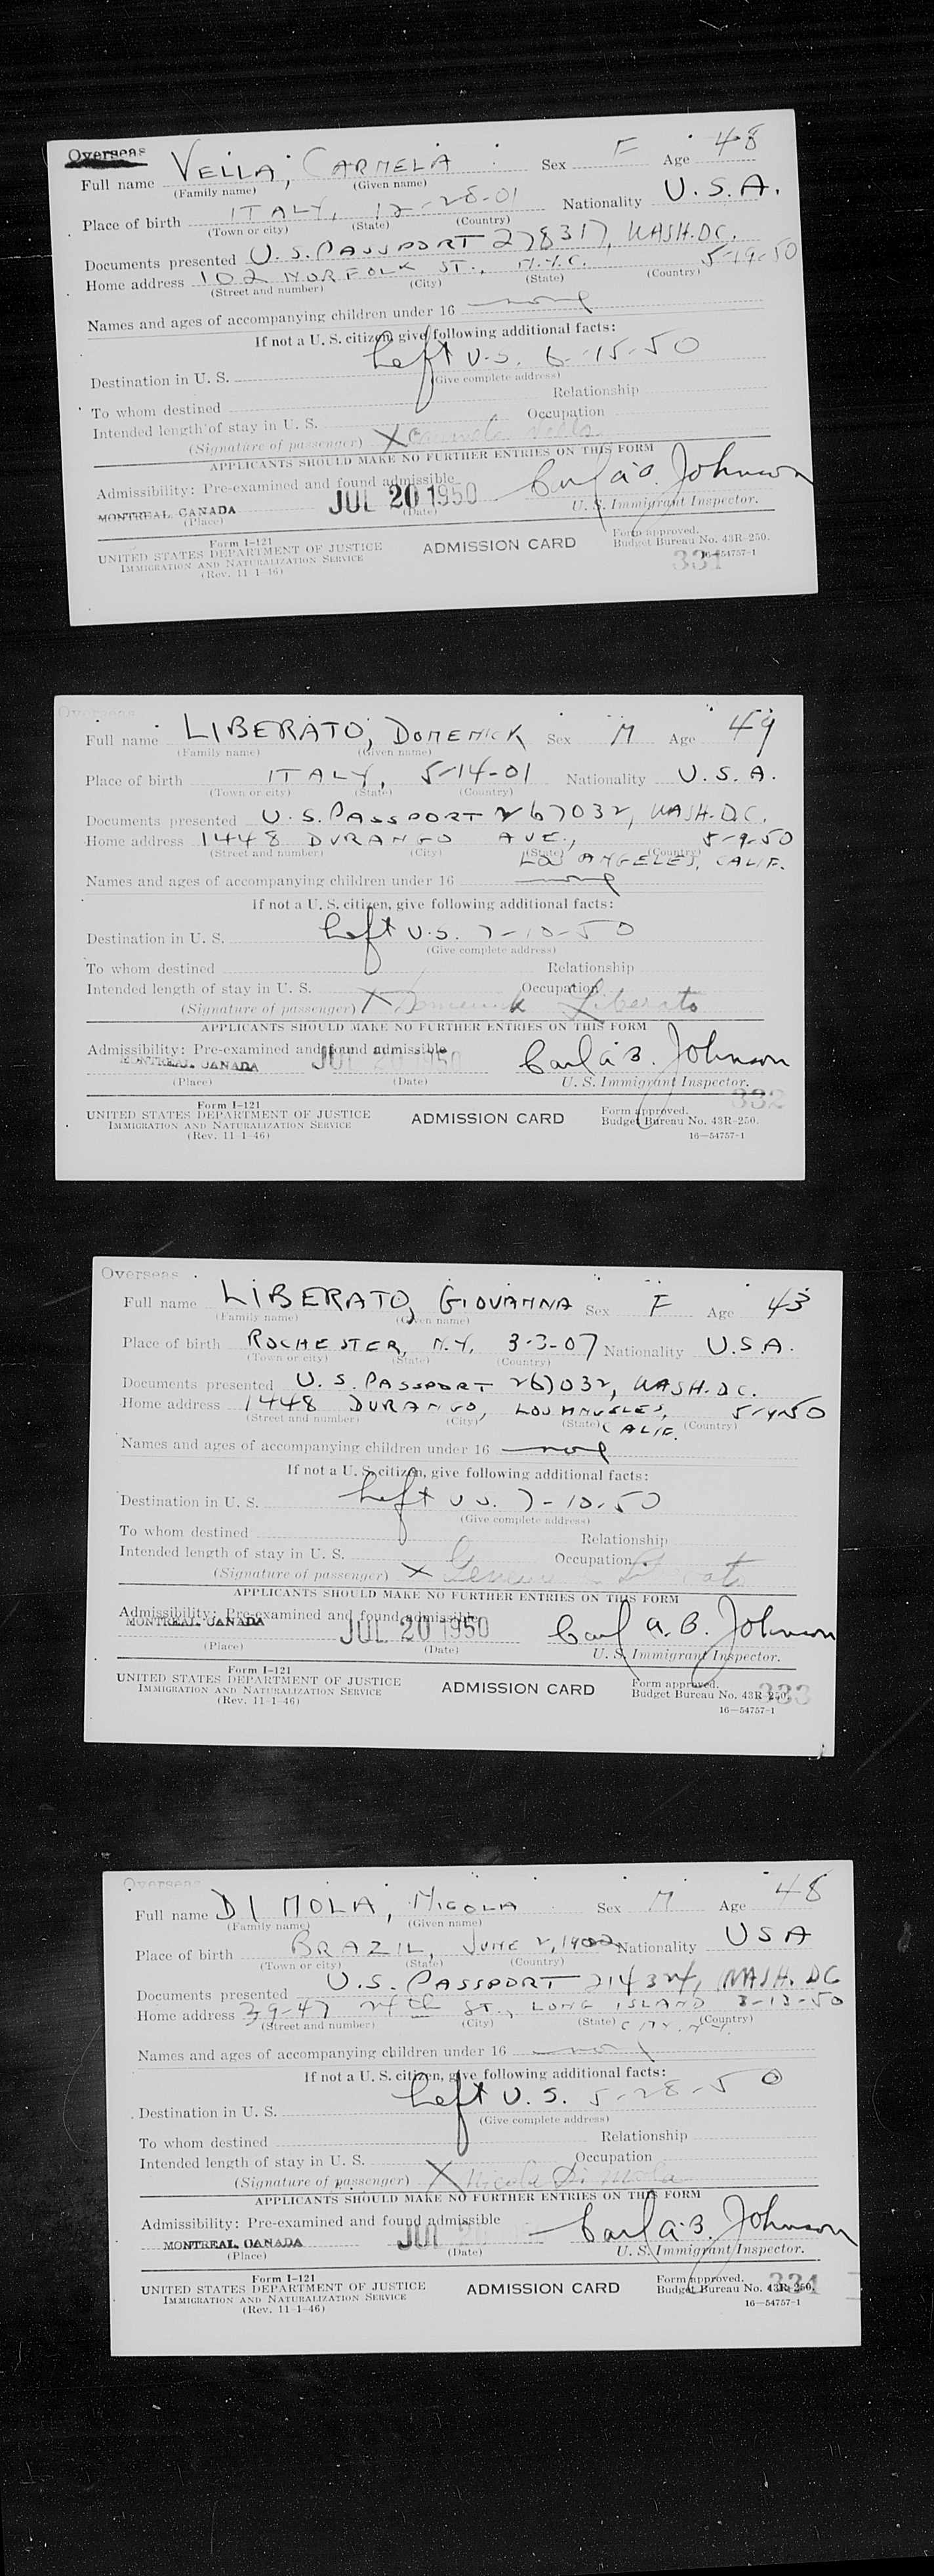 Overseas
Full name VELLA, CARMELA Sex F Age 48
(Family name) (Given name)
Place of birth ITALY, 12-28-01 Nationality U.S.A.
(Town or city) (State) (Country)
Documents presented U.S. PASSPORT 278317, WASH.DC.
Home address 102 NORFOLK ST., N.Y.C. 5-19-50
(Street and number) (City) (State) (Country)
Names and ages of accompanying children under 16 none
If not a U. S. citizen, give following additional facts:
Left U.S. 6-15-50
Destination in U. S.
(Give complete address)
To whom destined Relationship
Intended length of stay in U. S. Occupation
(Signature of passenger) X Vella
APPLICANTS SHOULD MAKE NO FURTHER ENTRIES ON THIS FORM
Admissibility: Pre-examined and found admissible
MONTREAL CANADA JUL 20 1950 Carl a B. Johnson
(Place) (Date) U. S. Immigrant Inspector.
Form I-121
UNITED STATES DEPARTMENT OF JUSTICE
IMMIGRATION AND NATURALIZATION SERVICE
(Rev. 11-1-46)
ADMISSION CARD
Form approved.
Budget Bureau No. 43R-250.
331 16—54757-1
Overseas
Full name LIBERATO, DOMENICK Sex M Age 49
(Family name) (Given name)
Place of birth ITALY, 5-14-01 Nationality U.S.A.
(Town or city) (State) (Country)
Documents presented U.S. PASSPORT 267032, WASH.D.C.
Home address 1448 DURANGO AVE., 5-9-50
(Street and number) (City) (State) (Country)
LOS ANGELES, CALIF.
Names and ages of accompanying children under 16 none
If not a U. S. citizen, give following additional facts:
Destination in U. S. Left U.S. 7-10-50
(Give complete address)
To whom destined Relationship
Intended length of stay in U. S. Occupation
(Signature of passenger) X Domenick Liberato
APPLICANTS SHOULD MAKE NO FURTHER ENTRIES ON THIS FORM
Admissibility: Pre-examined and found admissible
MONTREAL, CANADA JUL 20 1950 Carl a B. Johnson
(Place) (Date) U. S. Immigrant Inspector.
332
Form I-121
UNITED STATES DEPARTMENT OF JUSTICE
IMMIGRATION AND NATURALIZATION SERVICE
(Rev. 11-1-46)
ADMISSION CARD
Form approved.
Budget Bureau No. 43R-250.
16—54757-1
Overseas
Full name LIBERATO, GIOVANNA Sex F Age 43
(Family name) (Given name)
Place of birth ROCHESTER, N.Y. 3-3-07 Nationality U.S.A.
(Town or city) (State) (Country)
Documents presented U.S. PASSPORT 267032, WASH.DC.
Home address 1448 DURANGO, LOS ANGELES, 5-9-50
(Street and number) (City) (State) (Country)
CALIF.
Names and ages of accompanying children under 16 none
If not a U. S. citizen, give following additional facts:
Destination in U. S. Left U.S. 7-10-50
(Give complete address)
To whom destined Relationship
Intended length of stay in U. S. Occupation
(Signature of passenger) X
APPLICANTS SHOULD MAKE NO FURTHER ENTRIES ON THIS FORM
Admissibility: Pre-examined and found admissible
MONTREAL, CANADA JUL 20 1950 Carl a. B. Johnson
(Place) (Date) U. S. Immigrant Inspector.
Form I-121
UNITED STATES DEPARTMENT OF JUSTICE
IMMIGRATION AND NATURALIZATION SERVICE
(Rev. 11-1-46)
ADMISSION CARD
Form approved.
Budget Bureau No. 43R-250.
333
16—54757-1
Overseas
Full name DI MOLA, NICOLA Sex M Age 48
(Family name) (Given name)
Place of birth BRAZIL, JUNE 2, 1902 Nationality USA
(Town or city) (State) (Country)
Documents presented U.S. PASSPORT 214324, WASH. DC
Home address 39-47 24th ST., LONG ISLAND 3-13-50
(Street and number) (City) (State) (Country)
CITY, N.Y.
Names and ages of accompanying children under 16 none
If not a U. S. citizen, give following additional facts:
Left U.S. 5-28-50
Destination in U. S.
(Give complete address)
To whom destined Relationship
Intended length of stay in U. S. Occupation
(Signature of passenger) X Nicola Di Mola
APPLICANTS SHOULD MAKE NO FURTHER ENTRIES ON THIS FORM
Admissibility: Pre-examined and found admissible
MONTREAL, CANADA JUL 20 Carl a. B. Johnson
(Place) (Date) U. S. Immigrant Inspector.
Form I-121
UNITED STATES DEPARTMENT OF JUSTICE
IMMIGRATION AND NATURALIZATION SERVICE
(Rev. 11-1-46)
ADMISSION CARD
Form approved.
Budget Bureau No. 43R-250.
334
16—54757-1